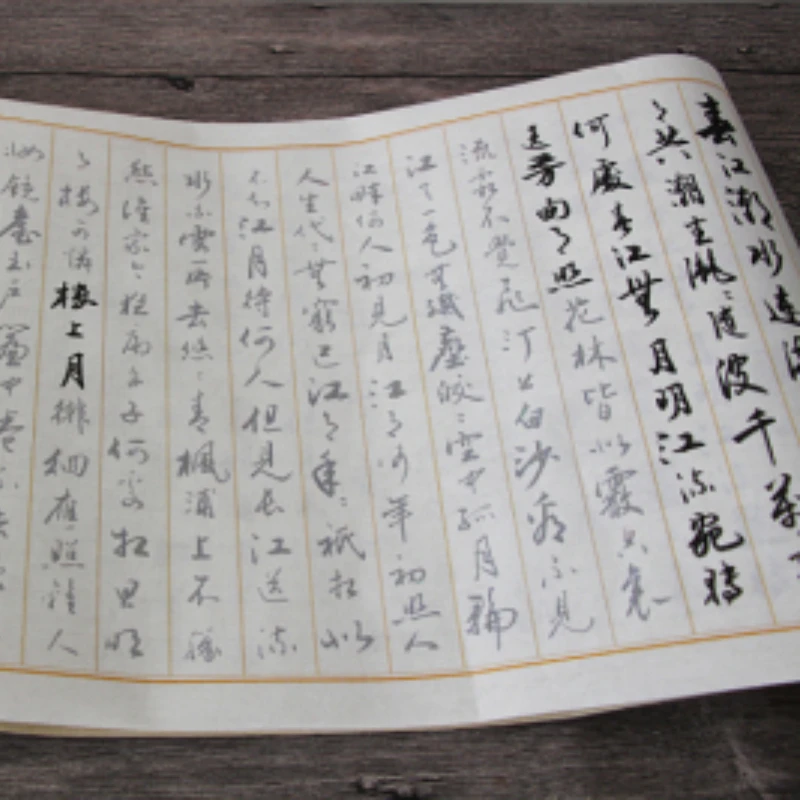 春江潮水連海
月共潮生灩〻隨波千萬
何處春江無月明江流宛轉
遶芳甸月照花林皆似霰空裏
流霜不覺飛汀上白沙看不見
江天一色無纖塵皎〻空中孤月輪
江畔何人初見月江月何年初照人
人生代〻無窮已江月年〻祇相似
不知江月待何人但見長江送流
水白雲一片去悠〻青楓浦上不勝
愁誰家今夜扁舟子何處相思明
月樓可憐樓上月徘徊應照離人
妝鏡臺玉戶簾中卷不去